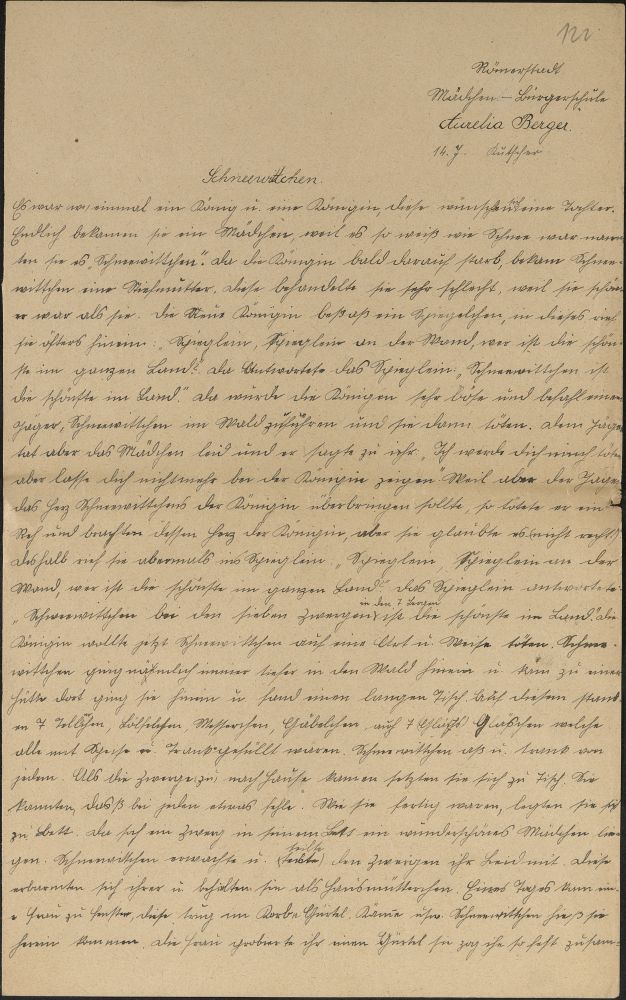 122.
Römerstadt
Mädchen-Bürgerschule
Aurelia Berger.
14. J. Kutscher
Schneewittchen.
Es war einmal ein König u. eine Königin, diese wünschten eine Tochter.
Endlich bekamen sie ein Mädchen, weil es so weiß wie Schnee war nann
ten sie es „Schneewittchen". Da die Königin bald darauf starb, bekam Schnee-
wittchen eine Stiefmutter. Diese behandelte sie sehr schlecht, weil sie schön
er war als sie. Die Neue Königin besaß ein Spiegelchen, in dieses rief
sie öfters hinein: „Spieglein, Spieglein an der Wand, wer ist die schön-
ste im ganzen Land? Da Antwortete das Spieglein: „Schneewittchen ist
die schönste im Land" Da wurde die Königen sehr böse und befahl einem
Jäger, Schneewittchen im Wald zuführen und sie dann töten. Dem Jäger
tat aber das Mädchen leid und er sagte zu ihr „Ich werde dich nicht töten
aber lasse dich nichtmehr bei der Königin zeigen" Weil aber der Jäger
das Herz Schneewittchens der Königin überbringen sollte, so tötete er ein
Reh und brachten dessen Herz der Königin, aber sie glaubte es (nicht recht)
Deshalb rief sie abermals ins Spieglein: „Spieglein, Spieglein an der
Wand, wer ist die schönste im ganzen Land?" das Spieglein antwortete:
„Schneewittchen bei den sieben Zwergen in den 7 Bergen ist die schönste im Land". Die
Königin wollte jetzt Schneewittchen auf eine Art u. Weise töten. Schnee-
wittchen ging nähmlich immer tiefer in den Wald hinein u. kam zu einer
Hütte dort ging sie hinein u. fand einen langen Tisch. Auf diesem stand
en 7 Löffelchen Messerchen, Gäbelchen, auch 7 Gläschen welche
alle mit Speise u. Trank gefüllt waren. Schneewittchen aß u. trank von
jedem. Als die Zwerge zu nach Hause kamen setzten sie sich zu Tisch. Sie
kannten, daß bei jeden etwas fehle. Wie sie fertig waren, legten sie sich
zu Bett. Da sah ein Zwerg in seinem Bett ein wunderschönes Mädchen lie-
gen. Schneewittchen erwachte u. teilte den Zwergen ihr Leid mit. Diese
erbarmten sich ihrer u. behielten sie als Hausmütterchen. Eines Tages kam ein-
e Frau zu Fenster, diese trug im Korbe Gürtel, Kämme usw. Schneewittchen hieß sie
herein kommen. Die Frau probierte ihr einen Gürtel sie zog ihn so fest zusam-